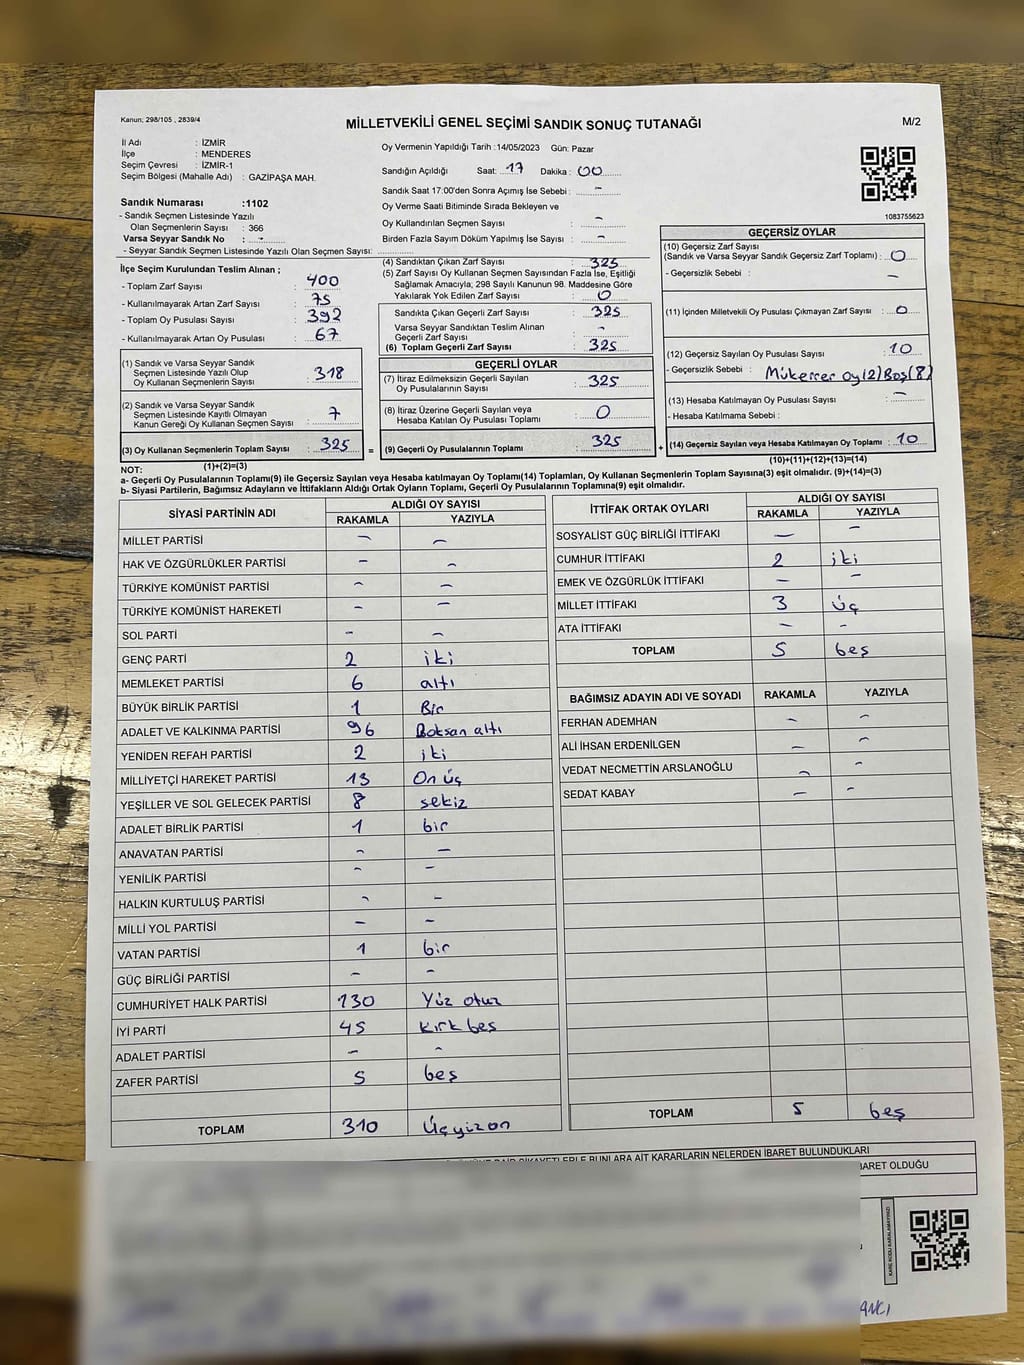 Kanun; 298/105 , 2839/4
MİLLETVEKİLİ GENEL SEÇİMİ SANDIK SONUÇ TUTANAĞI
M/2
İl Adı : İZMİR
İlçe : MENDERES
Seçim Çevresi : İZMİR-1
Seçim Bölgesi (Mahalle Adı) : GAZİPAŞA MAH.
Sandık Numarası :1102
- Sandık Seçmen Listesinde Yazılı
Olan Seçmenlerin Sayısı : 366
Varsa Seyyar Sandık No : -
- Seyyar Sandık Seçmen Listesinde Yazılı Olan Seçmen Sayısı:
Oy Vermenin Yapıldığı Tarih :14/05/2023 Gün: Pazar
Sandığın Açıldığı Saat: 17 Dakika : 00
Sandık Saat 17:00'den Sonra Açımış İse Sebebi : -
Oy Verme Saati Bitiminde Sırada Bekleyen ve
Oy Kullandırılan Seçmen Sayısı : -
Birden Fazla Sayım Döküm Yapılmış İse Sayısı : -
1083755623
İlçe Seçim Kurulundan Teslim Alınan ;
- Toplam Zarf Sayısı : 400
- Kullanılmayarak Artan Zarf Sayısı : 75
- Toplam Oy Pusulası Sayısı : 392
- Kullanılmayarak Artan Oy Pusulası : 67
(1) Sandık ve Varsa Seyyar Sandık
Seçmen Listesinde Yazılı Olup
Oy Kullanan Seçmenlerin Sayısı : 318
(2) Sandık ve Varsa Seyyar Sandık
Seçmen Listesinde Kayıtlı Olmayan
Kanun Gereği Oy Kullanan Seçmen Sayısı : 7
(3) Oy Kullanan Seçmenlerin Toplam Sayısı : 325
(1)+(2)=(3)
(4) Sandıktan Çıkan Zarf Sayısı : 325
(5) Zarf Sayısı Oy Kullanan Seçmen Sayısından Fazla İse, Eşitliği
Sağlamak Amacıyla; 298 Sayılı Kanunun 98. Maddesine Göre
Yakılarak Yok Edilen Zarf Sayısı : 0
Sandıkta Çıkan Geçerli Zarf Sayısı : 325
Varsa Seyyar Sandıktan Teslim Alınan
Geçerli Zarf Sayısı : -
(6) Toplam Geçerli Zarf Sayısı : 325
GEÇERLİ OYLAR
(7) İtiraz Edilmeksizin Geçerli Sayılan
Oy Pusulalarının Sayısı : 325
(8) İtiraz Üzerine Geçerli Sayılan veya
Hesaba Katılan Oy Pusulası Toplamı : 0
= (9) Geçerli Oy Pusulalarının Toplamı : 325
GEÇERSİZ OYLAR
(10) Geçersiz Zarf Sayısı
(Sandık ve Varsa Seyyar Sandık Geçersiz Zarf Toplamı) : 0
- Geçersizlik Sebebi : -
(11) İçinden Milletvekili Oy Pusulası Çıkmayan Zarf Sayısı : 0
(12) Geçersiz Sayılan Oy Pusulası Sayısı : 10
- Geçersizlik Sebebi : Mükerrer oy(2) Boş(8)
(13) Hesaba Katılmayan Oy Pusulası Sayısı : -
- Hesaba Katılmama Sebebi :
+ (14) Geçersiz Sayılan veya Hesaba Katılmayan Oy Toplamı : 10
(10)+(11)+(12)+(13)=(14)
NOT:
a- Geçerli Oy Pusulalarının Toplamı(9) ile Geçersiz Sayılan veya Hesaba katılmayan Oy Toplamı(14) Toplamları, Oy Kullanan Seçmenlerin Toplam Sayısına(3) eşit olmalıdır. (9)+(14)=(3)
b- Siyasi Partilerin, Bağımsız Adayların ve İttifakların Aldığı Ortak Oyların Toplamı, Geçerli Oy Pusulalarının Toplamına(9) eşit olmalıdır.
SİYASİ PARTİNİN ADI ALDIĞI OY SAYISI
RAKAMLA YAZIYLA
MİLLET PARTİSİ - -
HAK VE ÖZGÜRLÜKLER PARTİSİ - -
TÜRKİYE KOMÜNİST PARTİSİ - -
TÜRKİYE KOMÜNİST HAREKETİ - -
SOL PARTİ - -
GENÇ PARTİ 2 iki
MEMLEKET PARTİSİ 6 altı
BÜYÜK BİRLİK PARTİSİ 1 Bir
ADALET VE KALKINMA PARTİSİ 96 Doksan altı
YENİDEN REFAH PARTİSİ 2 iki
MİLLİYETÇİ HAREKET PARTİSİ 13 On üç
YEŞİLLER VE SOL GELECEK PARTİSİ 8 sekiz
ADALET BİRLİK PARTİSİ 1 bir
ANAVATAN PARTİSİ - -
YENİLİK PARTİSİ - -
HALKIN KURTULUŞ PARTİSİ - -
MİLLİ YOL PARTİSİ - -
VATAN PARTİSİ 1 bir
GÜÇ BİRLİĞİ PARTİSİ - -
CUMHURİYET HALK PARTİSİ 130 Yüz otuz
İYİ PARTİ 45 kırk beş
ADALET PARTİSİ - -
ZAFER PARTİSİ 5 beş
TOPLAM 310 Üçyüzon
İTTİFAK ORTAK OYLARI ALDIĞI OY SAYISI
RAKAMLA YAZIYLA
SOSYALİST GÜÇ BİRLİĞİ İTTİFAKI - -
CUMHUR İTTİFAKI 2 iki
EMEK VE ÖZGÜRLÜK İTTİFAKI - -
MİLLET İTTİFAKI 3 üç
ATA İTTİFAKI - -
TOPLAM 5 beş
BAĞIMSIZ ADAYIN ADI VE SOYADI RAKAMLA YAZIYLA
FERHAN ADEMHAN - -
ALİ İHSAN ERDENİLGEN - -
VEDAT NECMETTİN ARSLANOĞLU - -
SEDAT KABAY - -
TOPLAM 5 beş
ŞİKAYETLERLE BUNLARA AİT KARARLARIN NELERDEN İBARET BULUNDUKLARI
BARET OLDUĞU